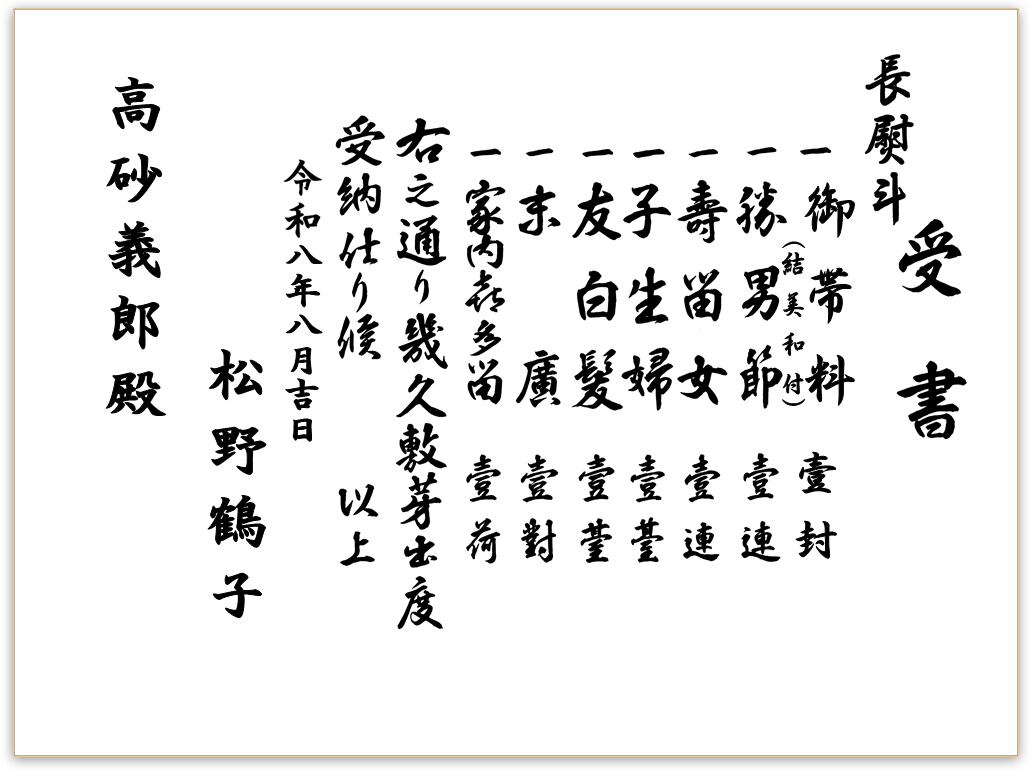 受書
長熨斗
一 御帯料 壹封
(結美和付)
一 勝男節 壹連
一 壽留女 壹連
一 子生婦 壹薹
一 友白髪 壹薹
一 末廣 壹對
一 家内喜多留 壹荷
右之通り幾久敷芽出度
受納仕り候 以上
令和八年八月吉日
松野鶴子
高砂義郎殿